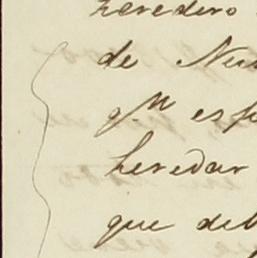 heredero
de
q.n esp
heredar
que deb